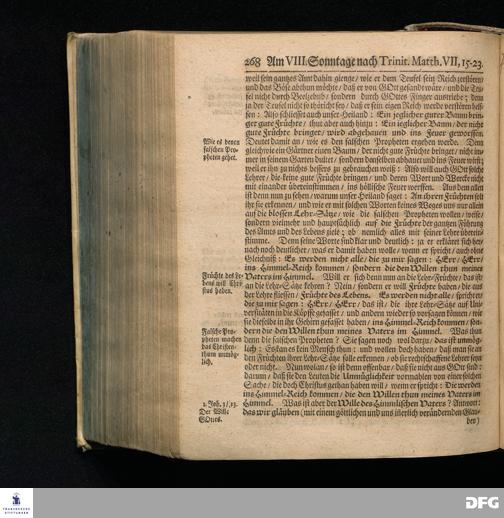 268 Am VIII. Sonntage nach Trinit. Matth. VII, 15-23.
weil sein gantzes Amt dahin gienge / wie er dem Teufel sein Reich zerstören
und das Böse abthun möchte / daß er von GOtt gesandt wäre / und die Teu-
fel nicht durch Beelzebub / sondern durch GOttes Finger austriebe; denn
ja der Teufel nicht so thöricht sey / daß er sein eigen Reich werde verstören hel-
fen: Also schliesset auch unser Heiland: Ein jeglicher guter Baum brin-
get gute Früchte / thut aber auch hinzu: Ein jeglicher Baum / der nicht
gute Früchte bringet / wird abgehauen und ins Feuer geworffen.
Wie es denen
falschen Pro-
pheten gehet.
Deutet damit an / wie es den falschen Propheten ergehen werde. Denn
gleichwie ein Gärtner einen Baum / der nicht gute Früchte bringet / nicht im-
mer in seinem Garten dultet / sondern denselben abhauet und ins Feuer wirft;
weil er ihn zu nichts bessers zu gebrauchen weiß: Also will auch GOtt solche
Lehrer / die keine gute Früchte bringen / und deren Wort und Werck nicht
mit einander übereinstimmen / ins höllische Feuer werffen. Aus dem allen
ist denn nun zu sehen / warum unser Heiland saget: An ihren Früchten solt
ihr sie erkennen / und wie er mit solchen Worten keines Weges uns nur allein
auf die blossen Lehr-Sätze / wie die falschen Propheten wollen / weise /
sondern vielmehr und hauptsächlich auf die Früchte der gantzen Führung
des Amts und des Lebens ziele; ob nemlich alles mit seiner Lehre überein-
stimme. Denn seine Worte sind klar und deutlich: ja er erkläret sich hier
nach noch deutlicher / was er damit haben wolle / wenn er spricht / auch ohne
Gleichniß: Es werden nicht alle / die zu mir sagen: HErr / HErr /
ins Himmel-Reich kommen / sondern die den Willen thun meines
Früchte des Le-
bens will Chri-
stus haben.
Vaters im Himmel. Will er sich denn nun an die Lehr-Früchte / das ist
an die Lehr-Sätze kehren? Nein / sondern er will Früchte haben / die aus
der Lehre fliessen / Früchte des Lebens. Es werden nicht alle / spricht er /
die zu mir sagen: HErr / HErr / das ist / die ihre Lehr-Sätze auf Uni-
versitäten in die Köpffe gefasset / und andern wieder so vorsagen können / wie
sie dieselbe in ihr Gehirn gefasset haben / ins Himmel-Reich kommen / son-
Falsche Pro-
pheten machen
das Christen-
thum unmög-
lich.
dern die den Willen thun meines Vaters im Himmel. Was thun
denn die falschen Propheten? Sie sagen noch wol darzu / das ist unmög-
lich: Es kan es kein Mensch thun: und wollen doch haben / daß man sie an
den Früchten ihrer Lehr-Sätze solle erkennen / ob sie rechtschaffene Lehrer seyn
oder nicht. Nun wolan / so ist denn offenbar / daß sie nicht aus GOtt sind:
darum / daß sie den Leuten die Unmöglichkeit vormahlen von einer solchen
Sache / die doch Christus gethan haben will / wenn er spricht: Die werden
ins Himmel-Reich kommen / die den Willen thun meines Vaters im
1. Joh. 3 / 23.
Der Wille
GOttes.
Himmel. Was ist aber der Wille des Himmlischen Vaters? Antwort:
das wir gläuben (mit einem göttlichen und uns innerlich verändernden Glau-
ben)
FRANCKESCHE
STIFTUNGEN
DFG